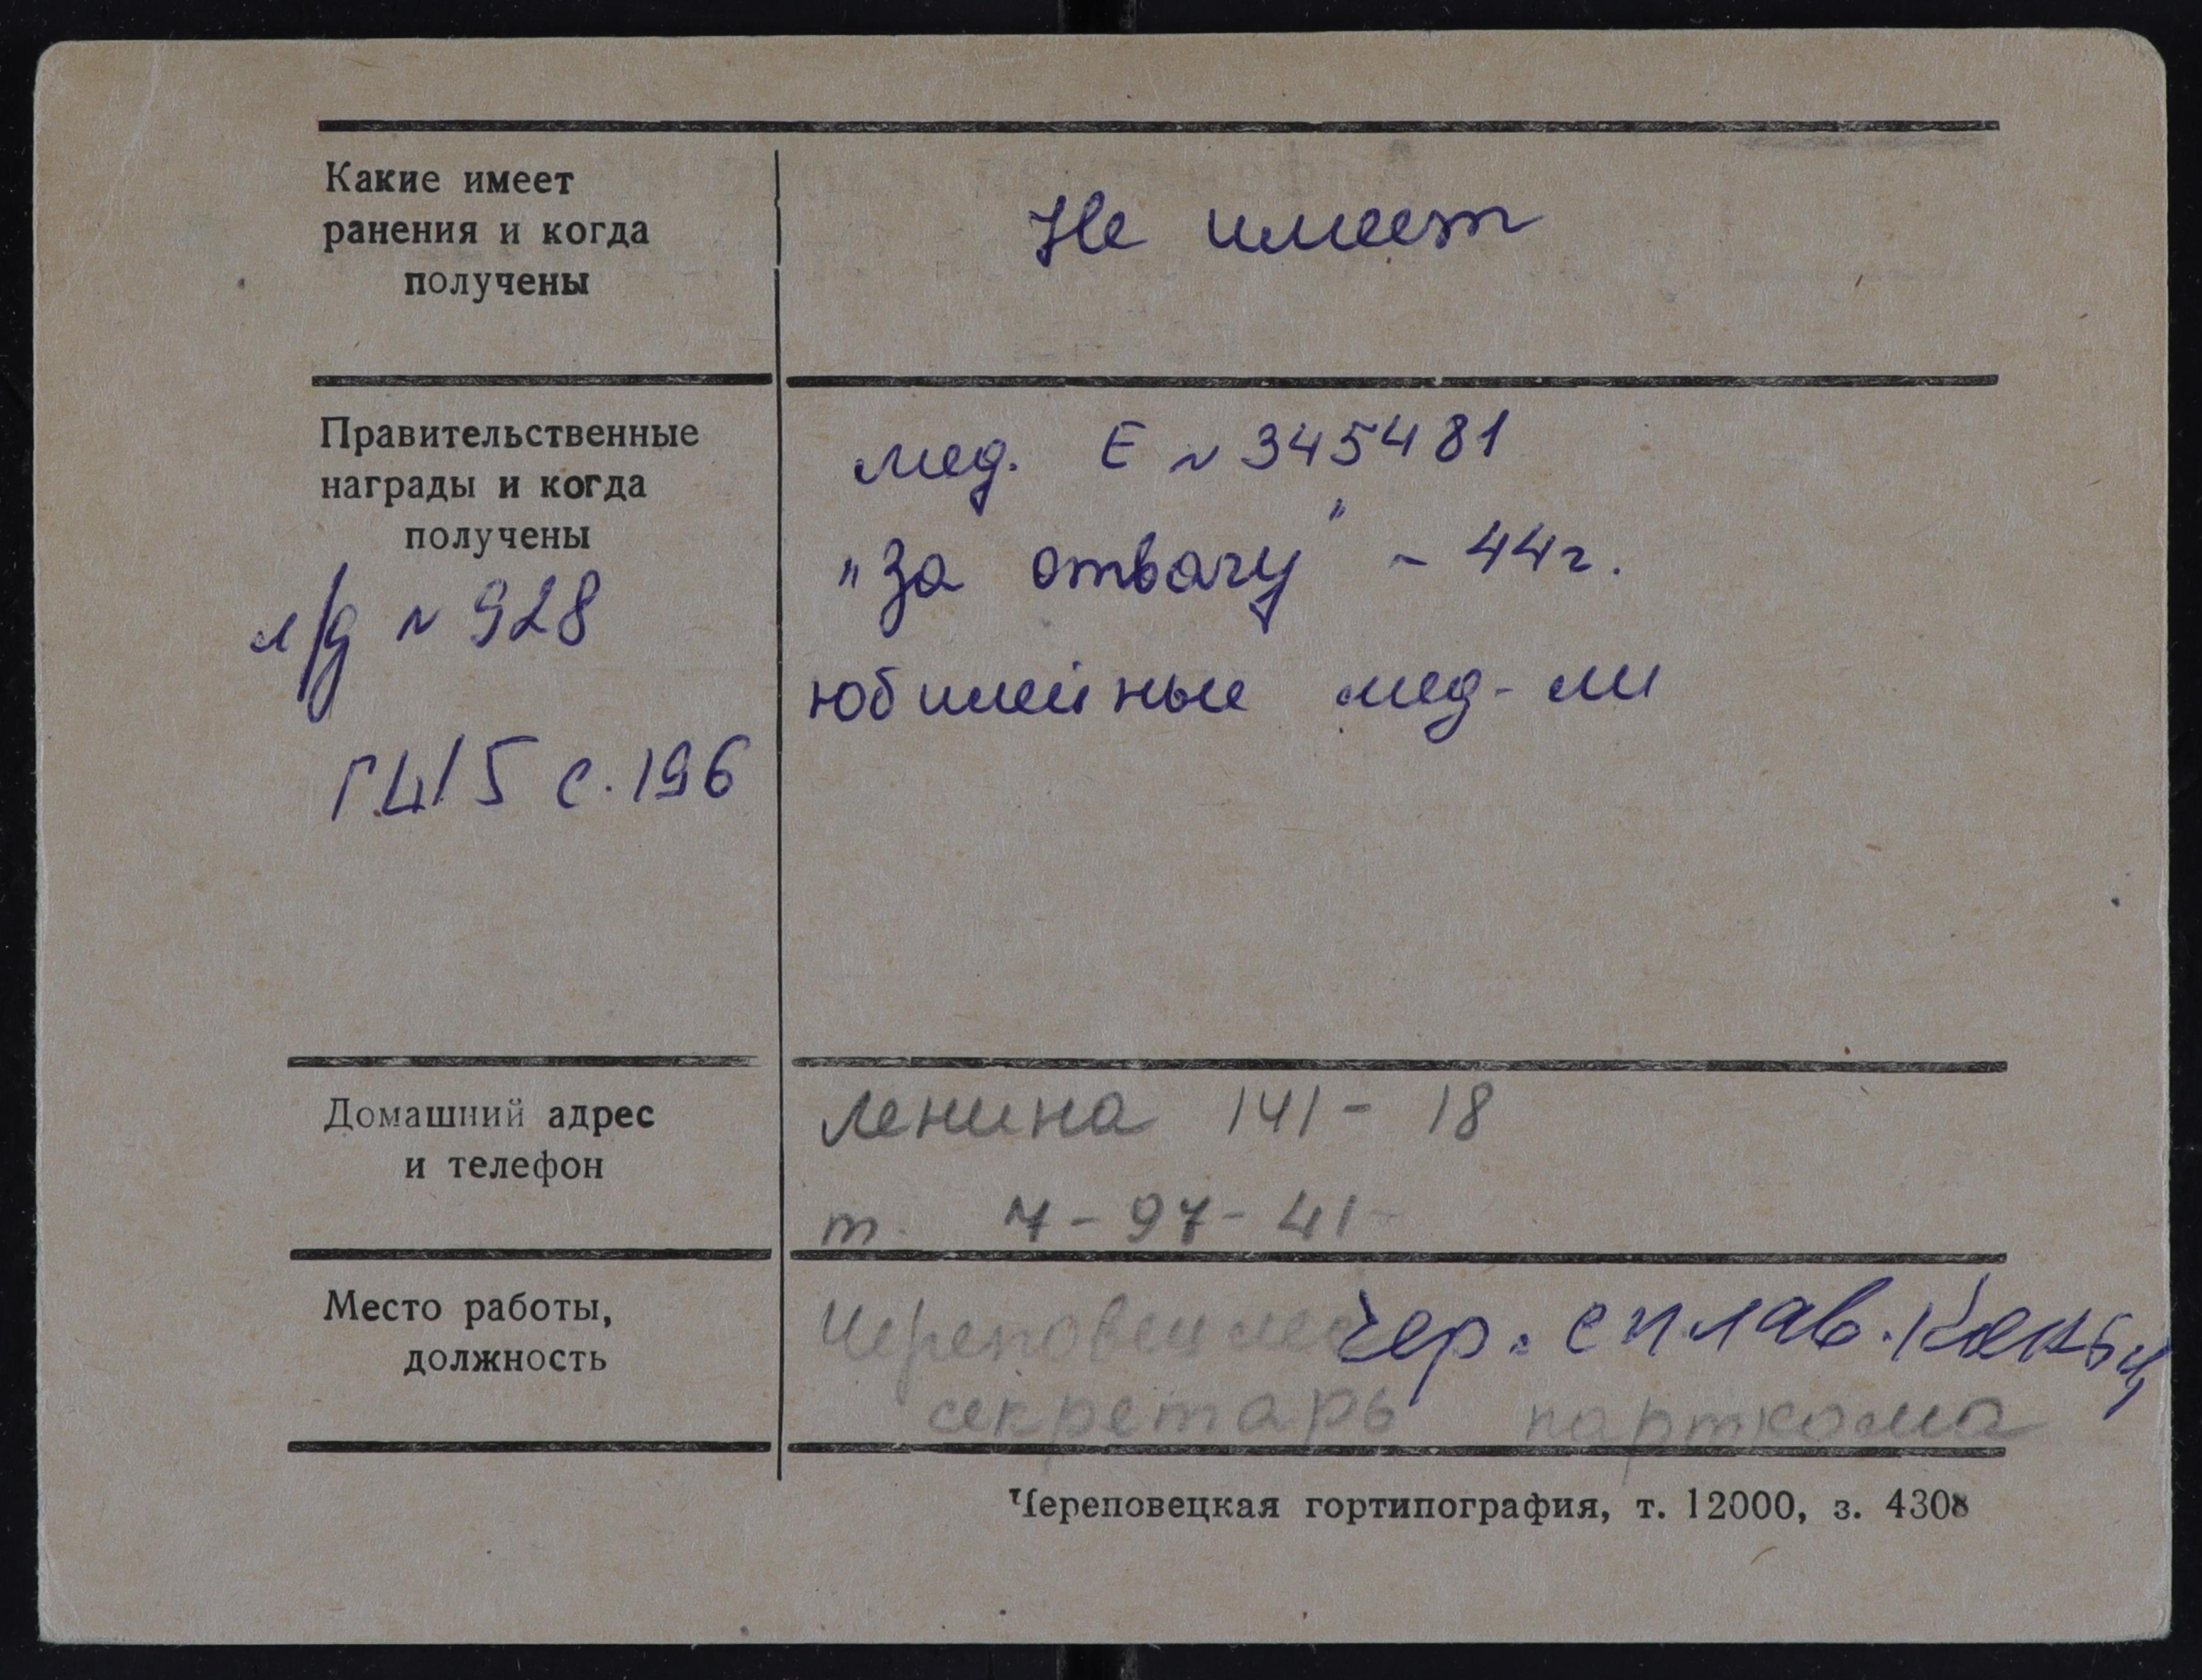 Какие имеет
ранения и когда
получены
Не имеет
Правительственные
награды и когда
получены
мед. Е № 345481
"За отвагу" - 44г.
юбилейные мед-ли
л/д № 928
с. 196
Домашний адрес
и телефон
Ленина 141 - 18
т. 7-97-41
Место работы,
должность
Череповецлес Чер. сплав.
секретарь парткома
Череповецкая гортипография, т. 12000, з. 4308